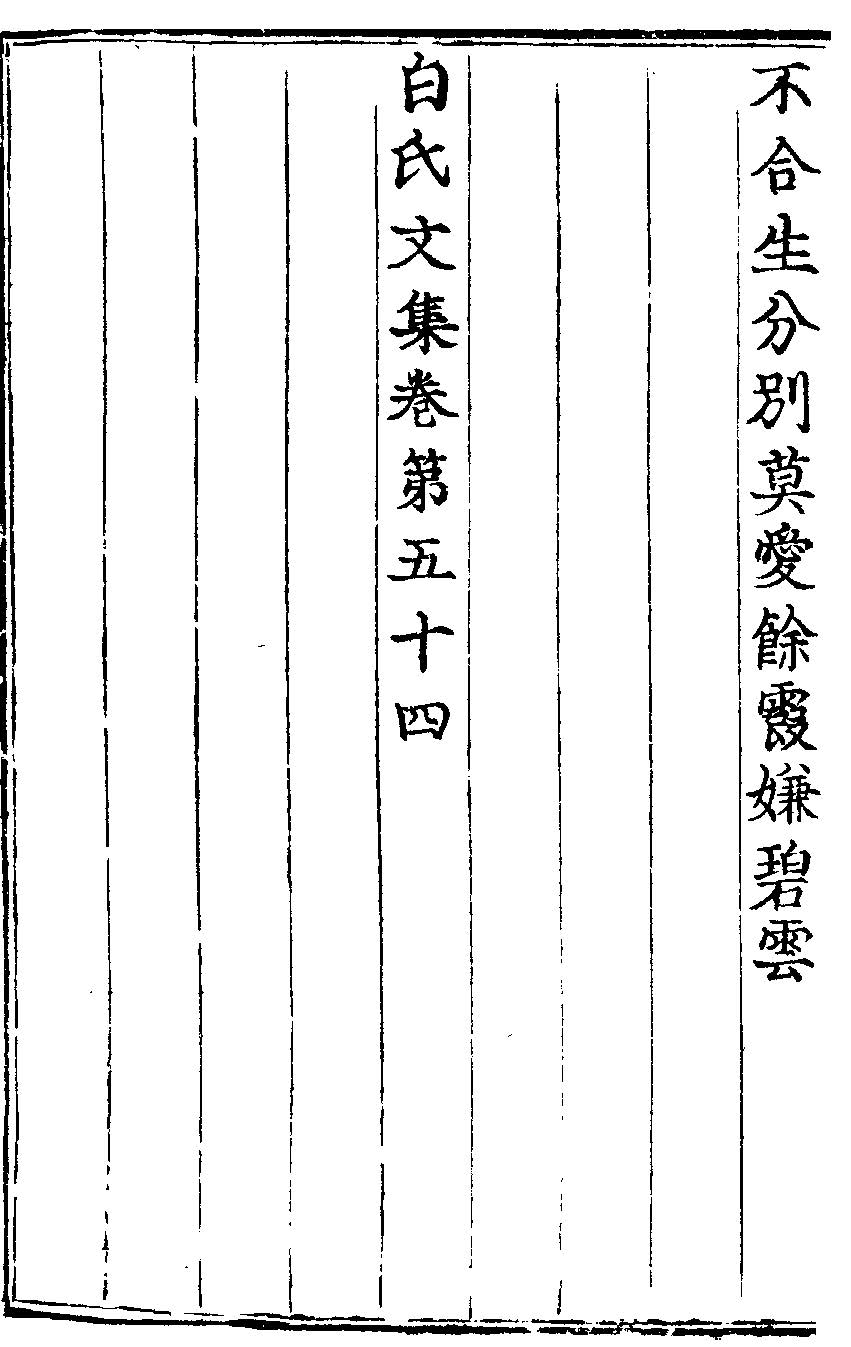 不合生分別莫愛餘霞嫌碧雲
白氏文集卷第五十四